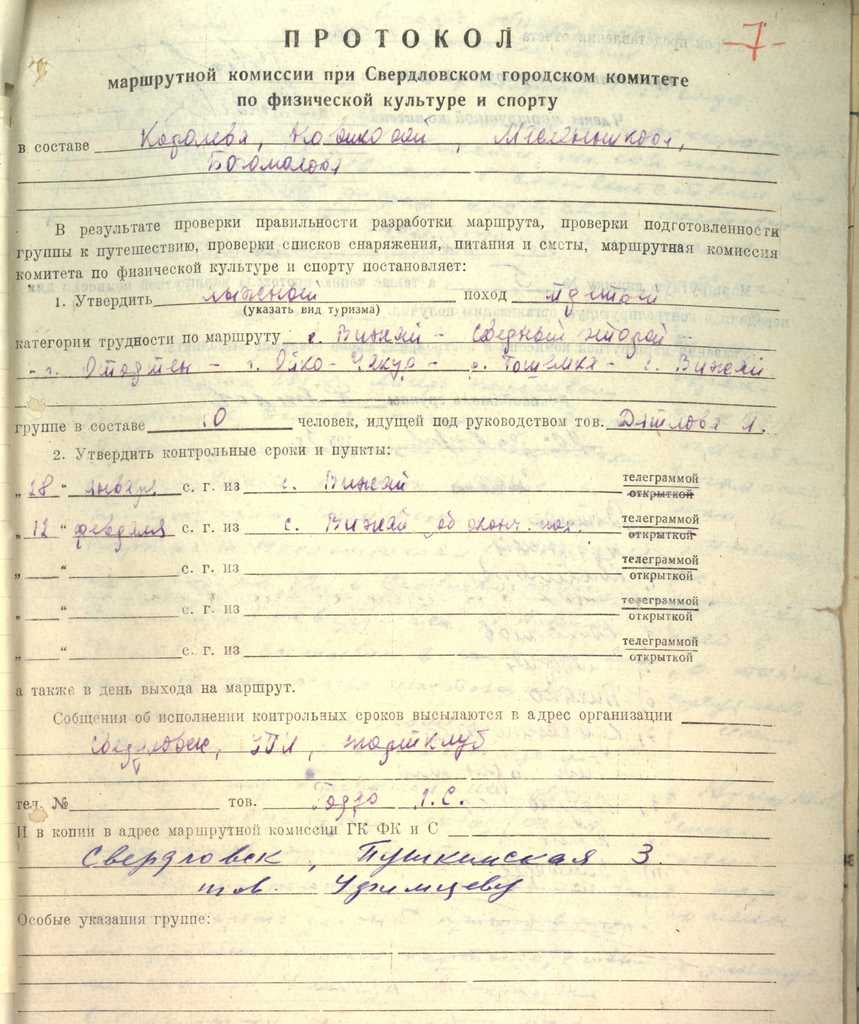 7
ПРОТОКОЛ
маршрутной комиссии при Свердловском городском комитете
по физической культуре и спорту
в составе Королева, Новиковой,
Богомолова
В результате проверки правильности разработки маршрута, проверки подготовленности
группы к путешествию, проверки списков снаряжения, питания и сметы, маршрутная комиссия
комитета по физической культуре и спорту постановляет:
1. Утвердить лыжный поход третьей
(указать вид туризма)
категории трудности по маршруту с. Вижай -
- г. Отортен - г. Ойко-Чакур - р. Тошемка - с. Вижай
группе в составе 10 человек, идущей под руководством тов. Дятлова И.
2. Утвердить контрольные сроки и пункты:
„28“ января с. г. из с. Вижай телеграммой
открыткой
„12“ февраля с. г. из с. Вижай об оконч. пох. телеграммой
открыткой
„ “ с. г. из телеграммой
открыткой
„ “ с. г. из телеграммой
открыткой
„ “ с. г. из телеграммой
открыткой
а также в день выхода на маршрут.
Собщения об исполнении контрольных сроков высылаются в адрес организации
Свердловск, УПИ, спортклуб
тел. № тов. Гордо Л.С.
И в копии в адрес маршрутной комиссии ГК ФК и С
Свердловск, Пушкинская 3.
тов. Уфимцеву
Особые указания группе: